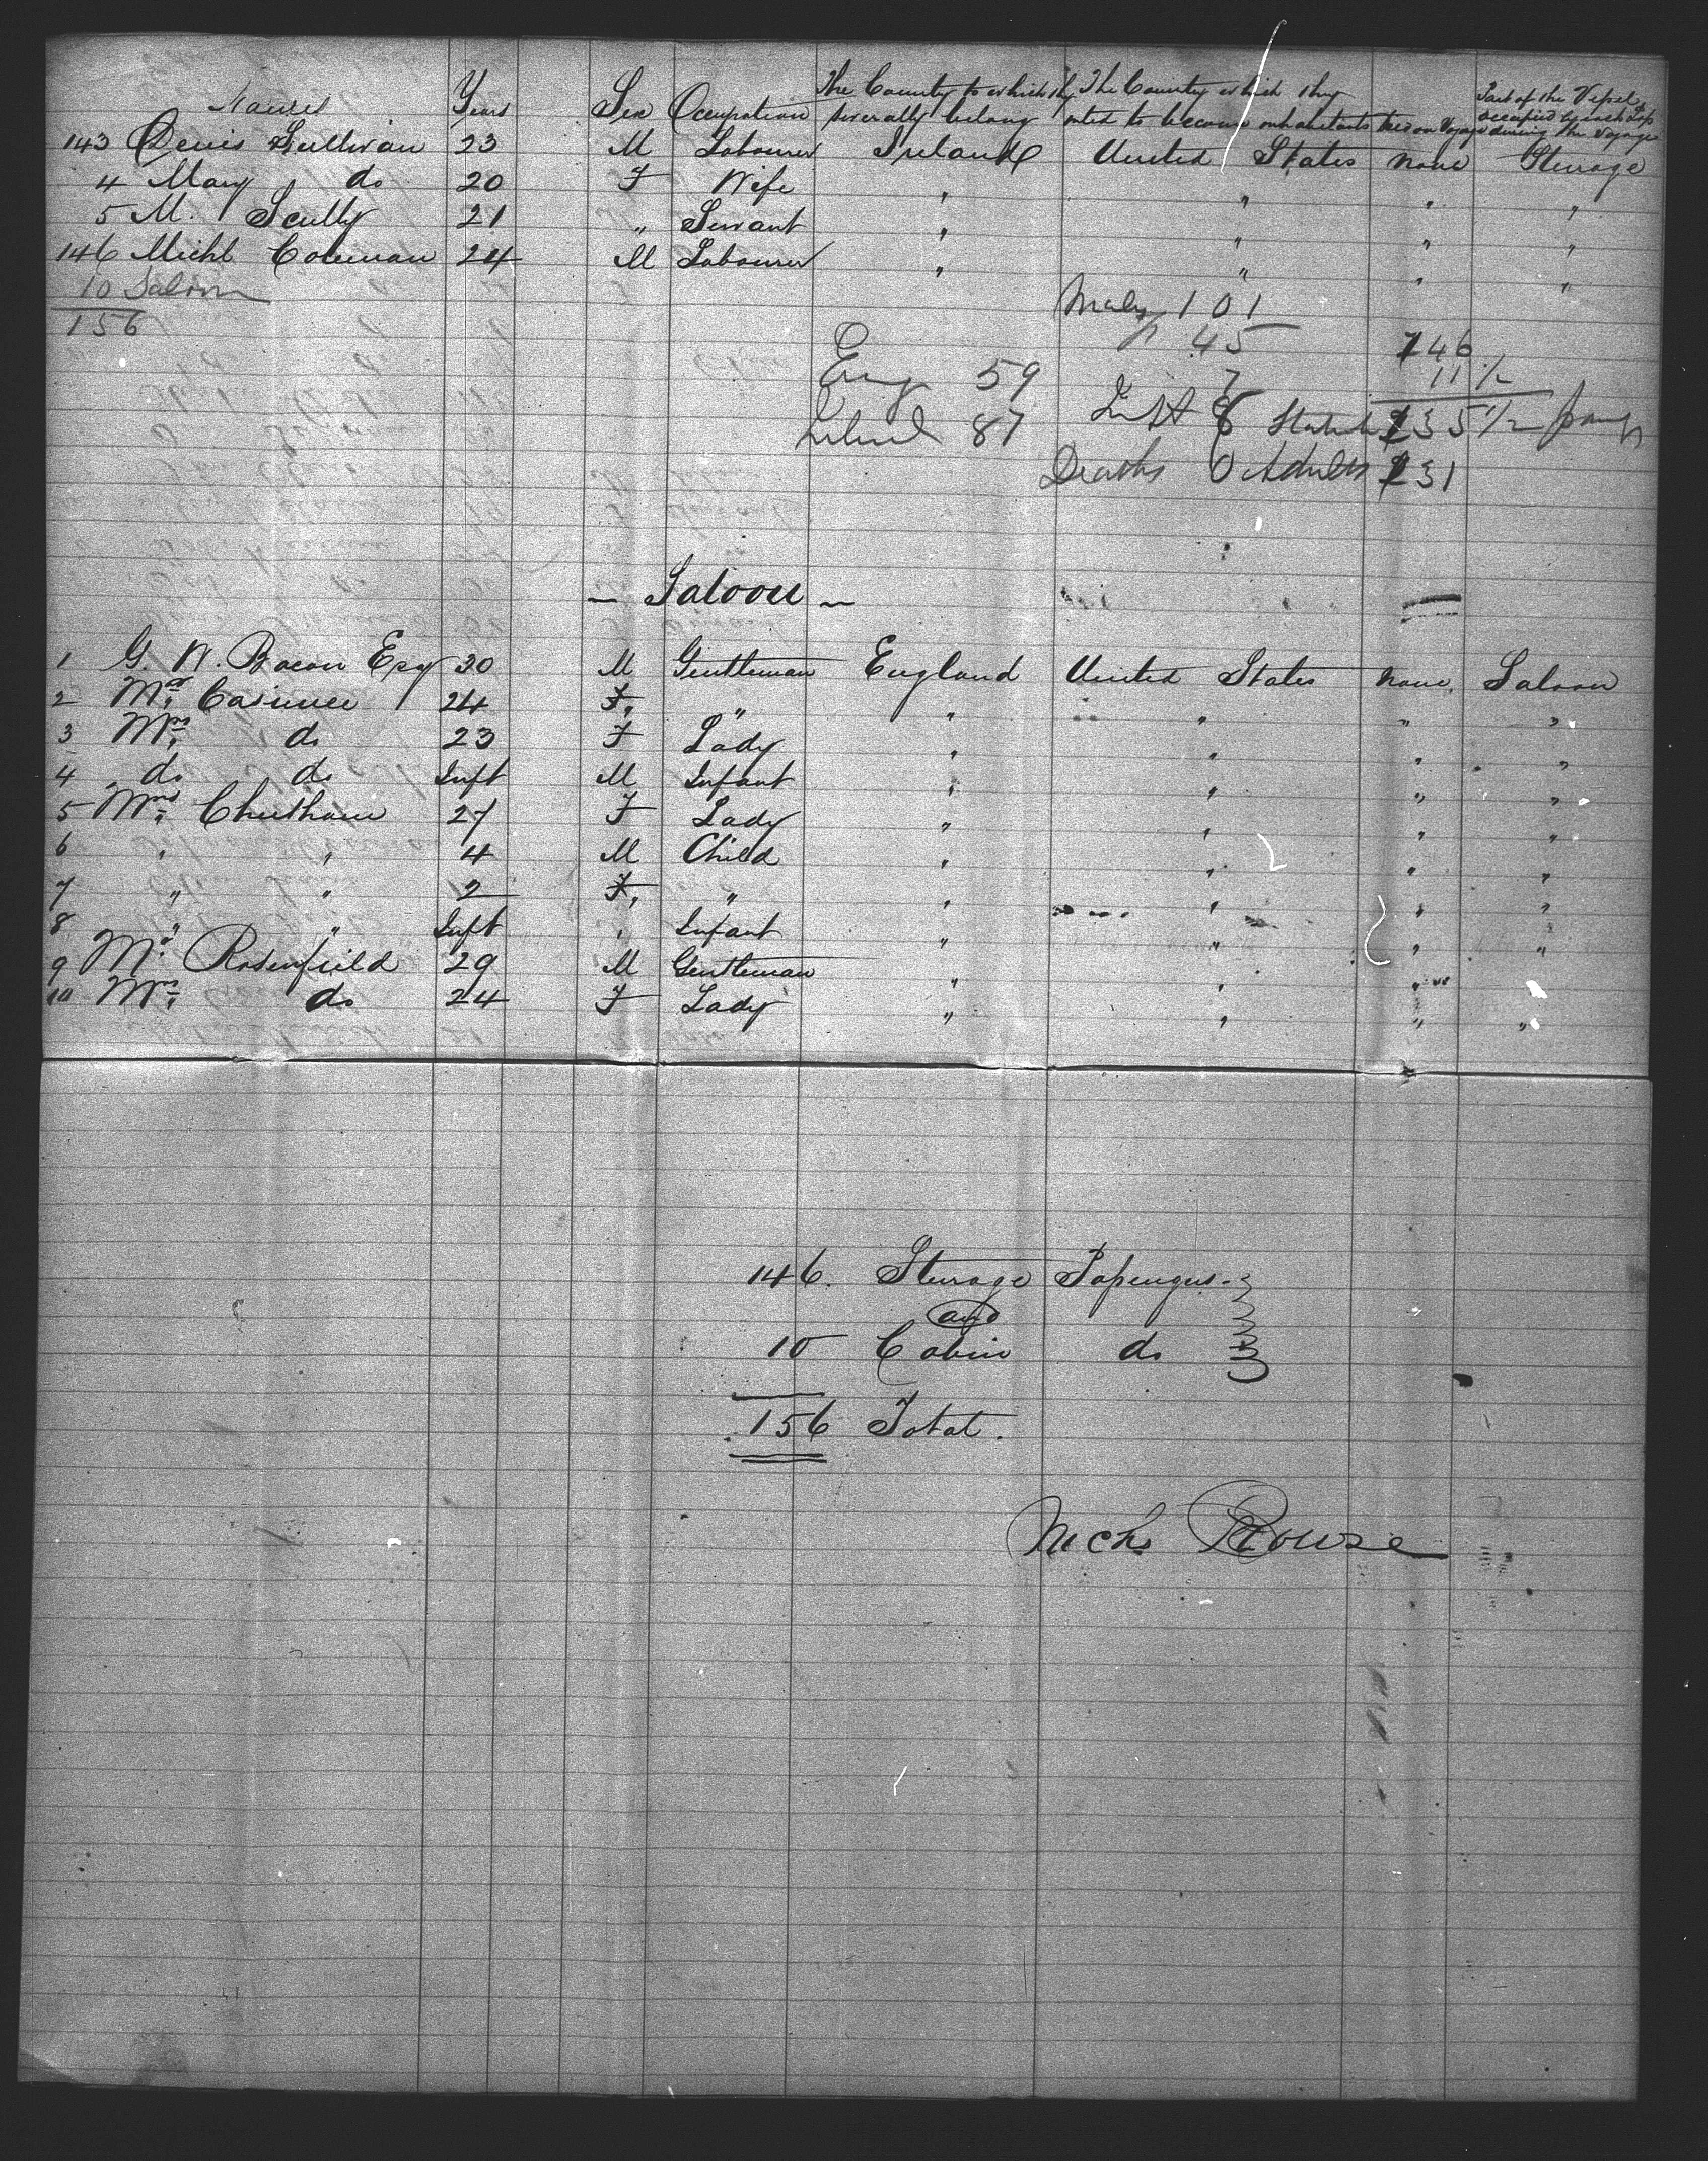 Names Years Sex Occupation The Country to which they severally belong The Country which they intend to become inhabitants Died on Voyage Part of the Vessel occupied by each during the Voyage
143 Denis Sullivan 23 M Labourer Ireland United States none Steerage
4 Mary do 20 F Wife " " " "
5 M. Scully 21 " Servant " " " "
146 Michl Coleman 24 M Labourer " " " "
10 Saloon
156
Males 101
45
146
Eng 59
7
11 1/2
87
8
135 1/2
Deaths 0 Adults 131
- Saloon -
1 G. W. Bacon Esqr 30 M Gentleman England United States none. Saloon
2 Mr. 24 F " " " " "
3 Mrs. do 23 F Lady " " " "
4 do do Inft M Infant " " " "
5 Mrs. Cheetham 27 F Lady " " " "
6 " " 4 M Child " " " "
7 " " 2 F " " " " "
8 " " Inft " Infant " " " "
9 Mr. Rosenfield 29 M Gentleman " " "
10 Mrs. do 24 F Lady " " " "
146. Steerage Passengers.
and
10 Cabin do
156 Total.
Nichs Prowse